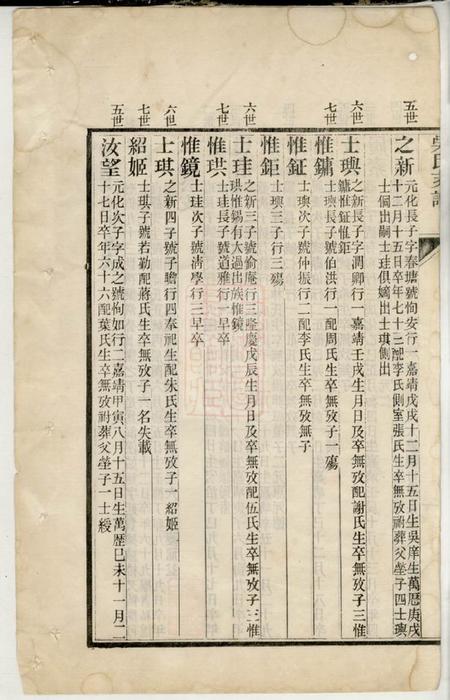 吳氏
五世
之新
元化長子字春塘號恂安行一嘉靖戊戌十二月十五日生吳庠生萬曆庚戌
十二月十五日卒年七十三配李氏側室張氏生卒無攷祔葬父塋子四士璵
士侗出嗣士珪俱嫡出士琪側出
六世
士璵
之新長子字潤卿行一嘉靖壬戌生月日及卒無攷配謝氏生卒無攷子三惟
鏞惟鉦惟鉅
七世
惟鏞
士璵長子號伯洪行一配周氏生卒無攷子一殤
惟鉦
士璵次子號仲振行二配李氏生卒無攷無子
惟鉅
士璵三子行三殤
六世
士珪
之新三子號俞庵行三隆慶戊辰生月日及卒無攷配伍氏生卒無攷子三惟
珙惟錫有大過出族惟鏡
七世
惟珙
士珪長子號道雅行一早卒
惟鏡
士珪次子號清學行三早卒
六世
士琪
之新四子號子瞻行四奉祀生配朱氏生卒無攷子一紹姬
七世
紹姬
士琪子號若勒配蔣氏生卒無攷子一名失載
五世
汝望
元化次子字成之號恂如行二嘉靖甲寅八月十五日生萬歷己未十一月二
十七日卒年六十六配葉氏生卒無攷祔葬父塋子一士綬